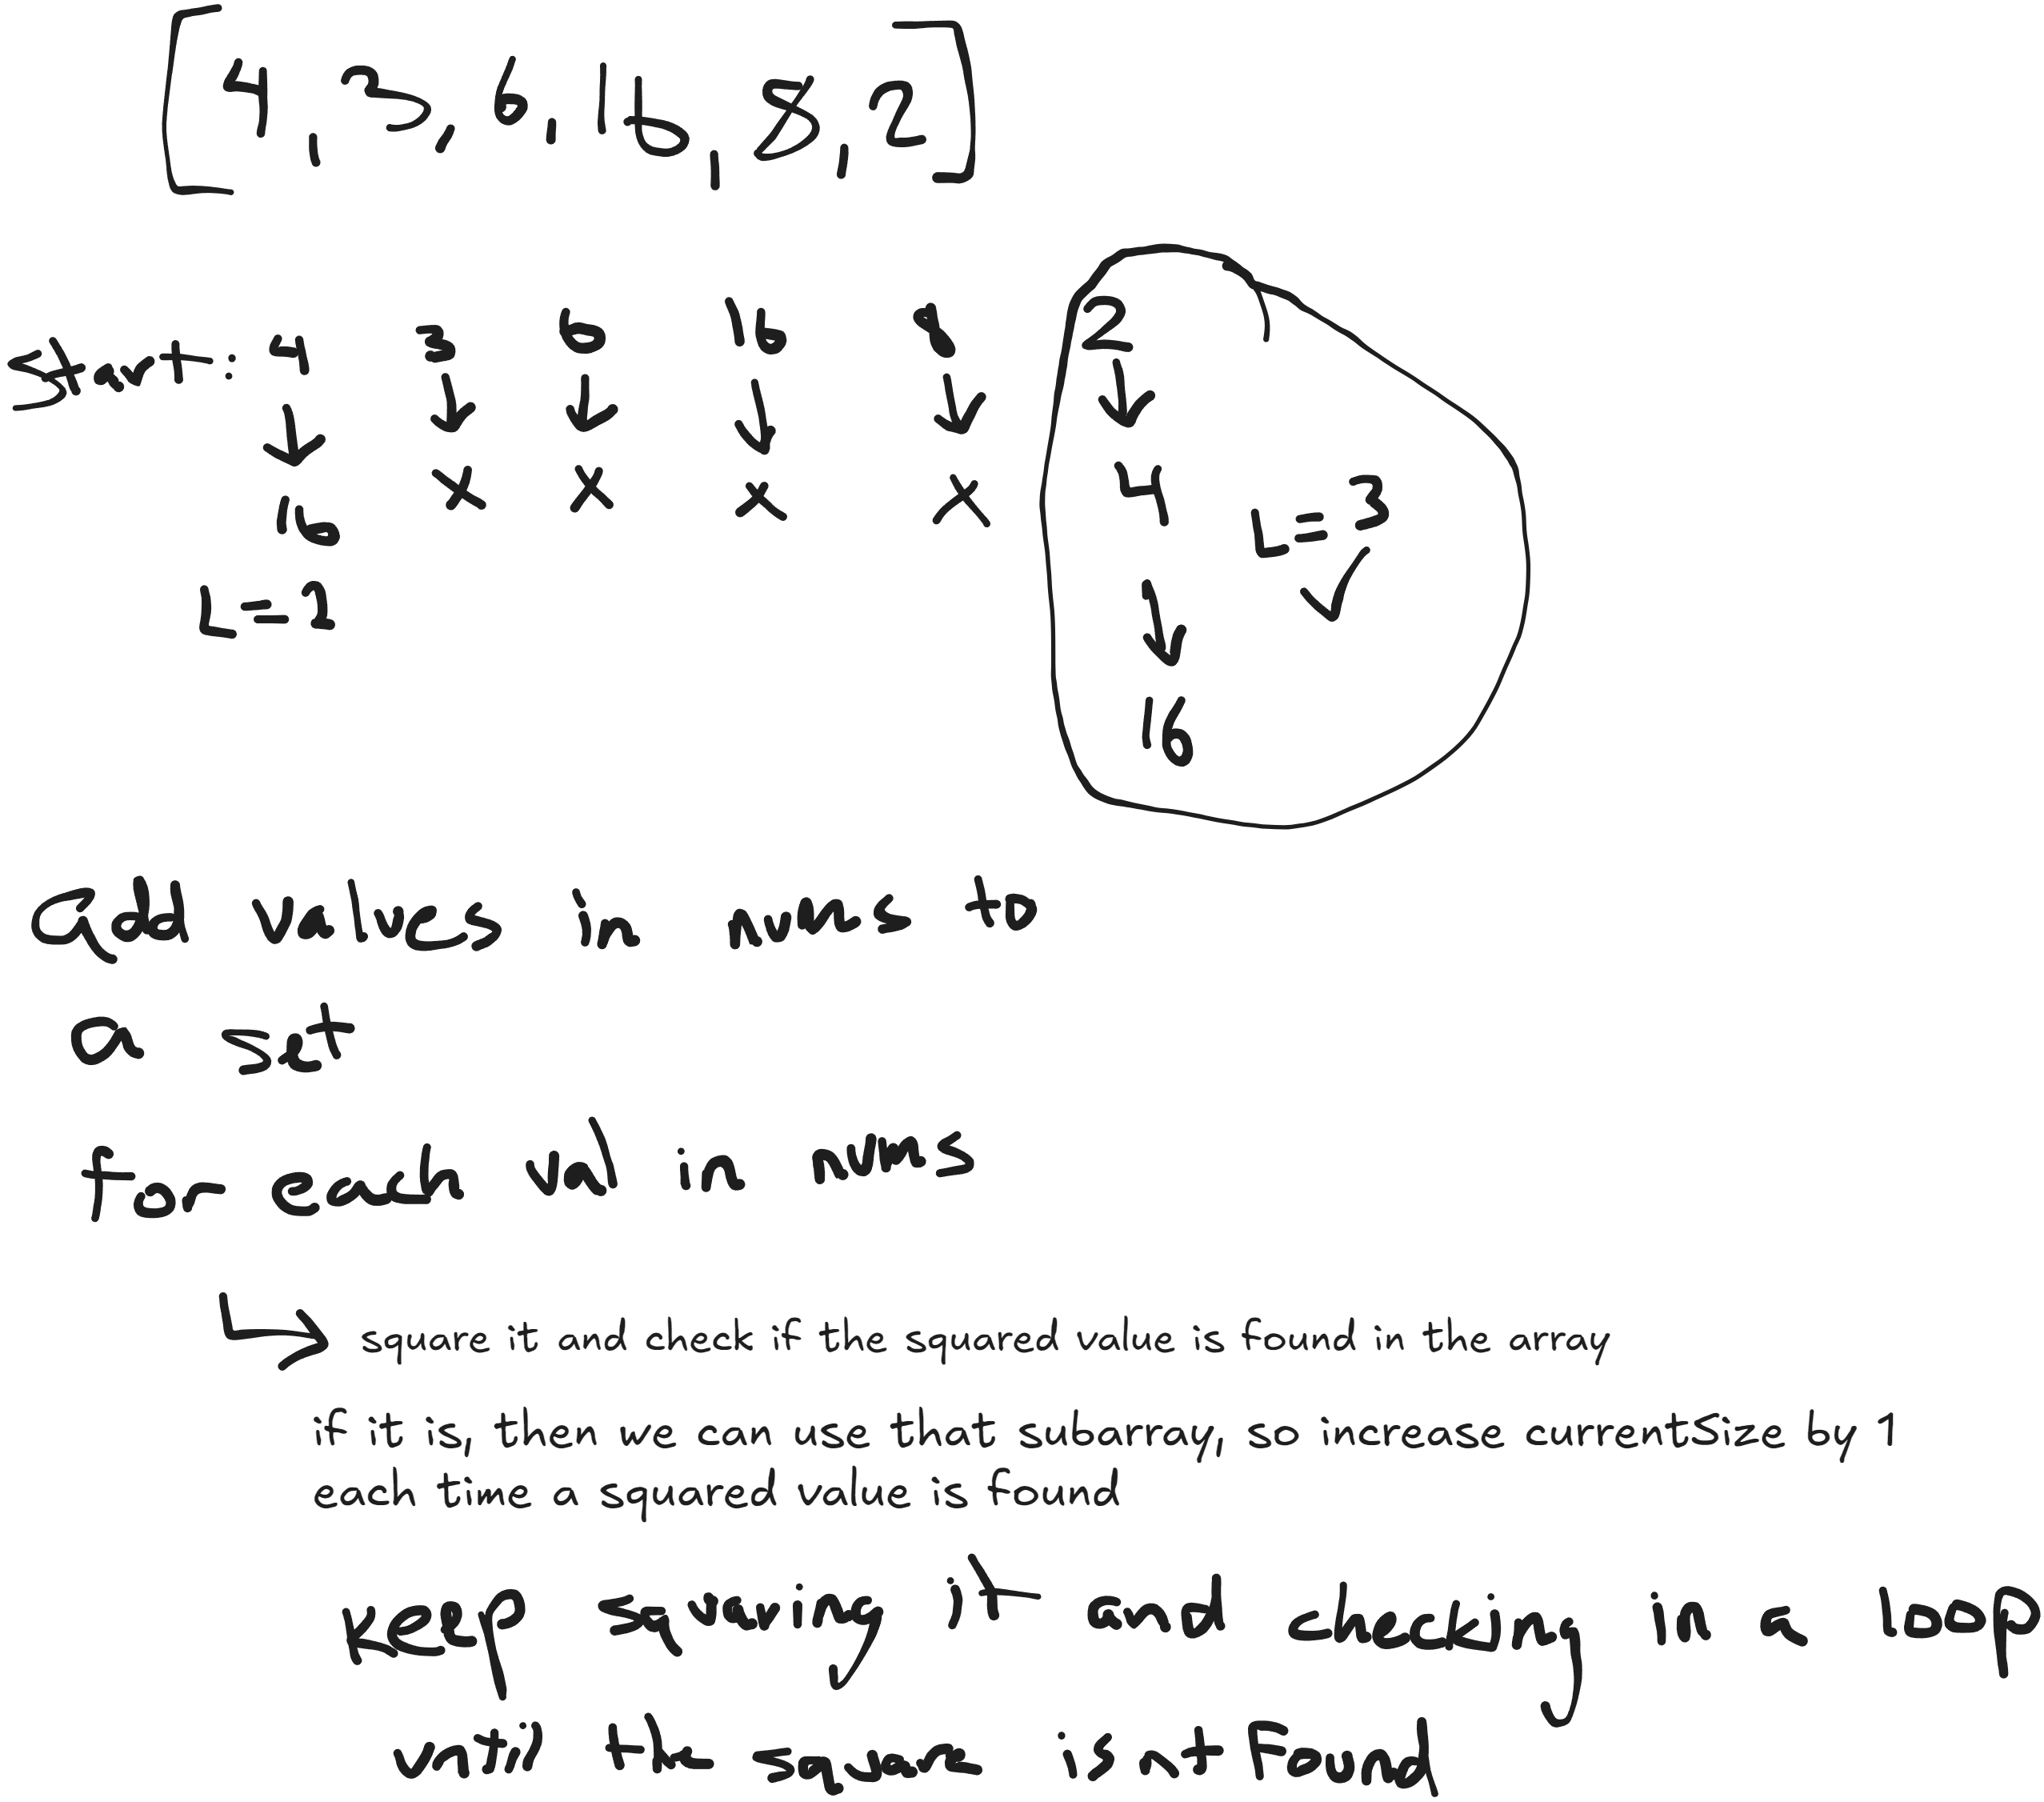 [4, 3, 6, 16, 8, 2]
Start: 4 3 6 16 8 2
x x x x 4
16 L=3
L=2
16
add values in nums to
a set
for each val in nums
square it and check if the squared value is found in the array
if it is, then we can use that subarray, so increase currentSize by 1
each time a squared value is found
keep squaring it and checking in a loop
until the square isnt found